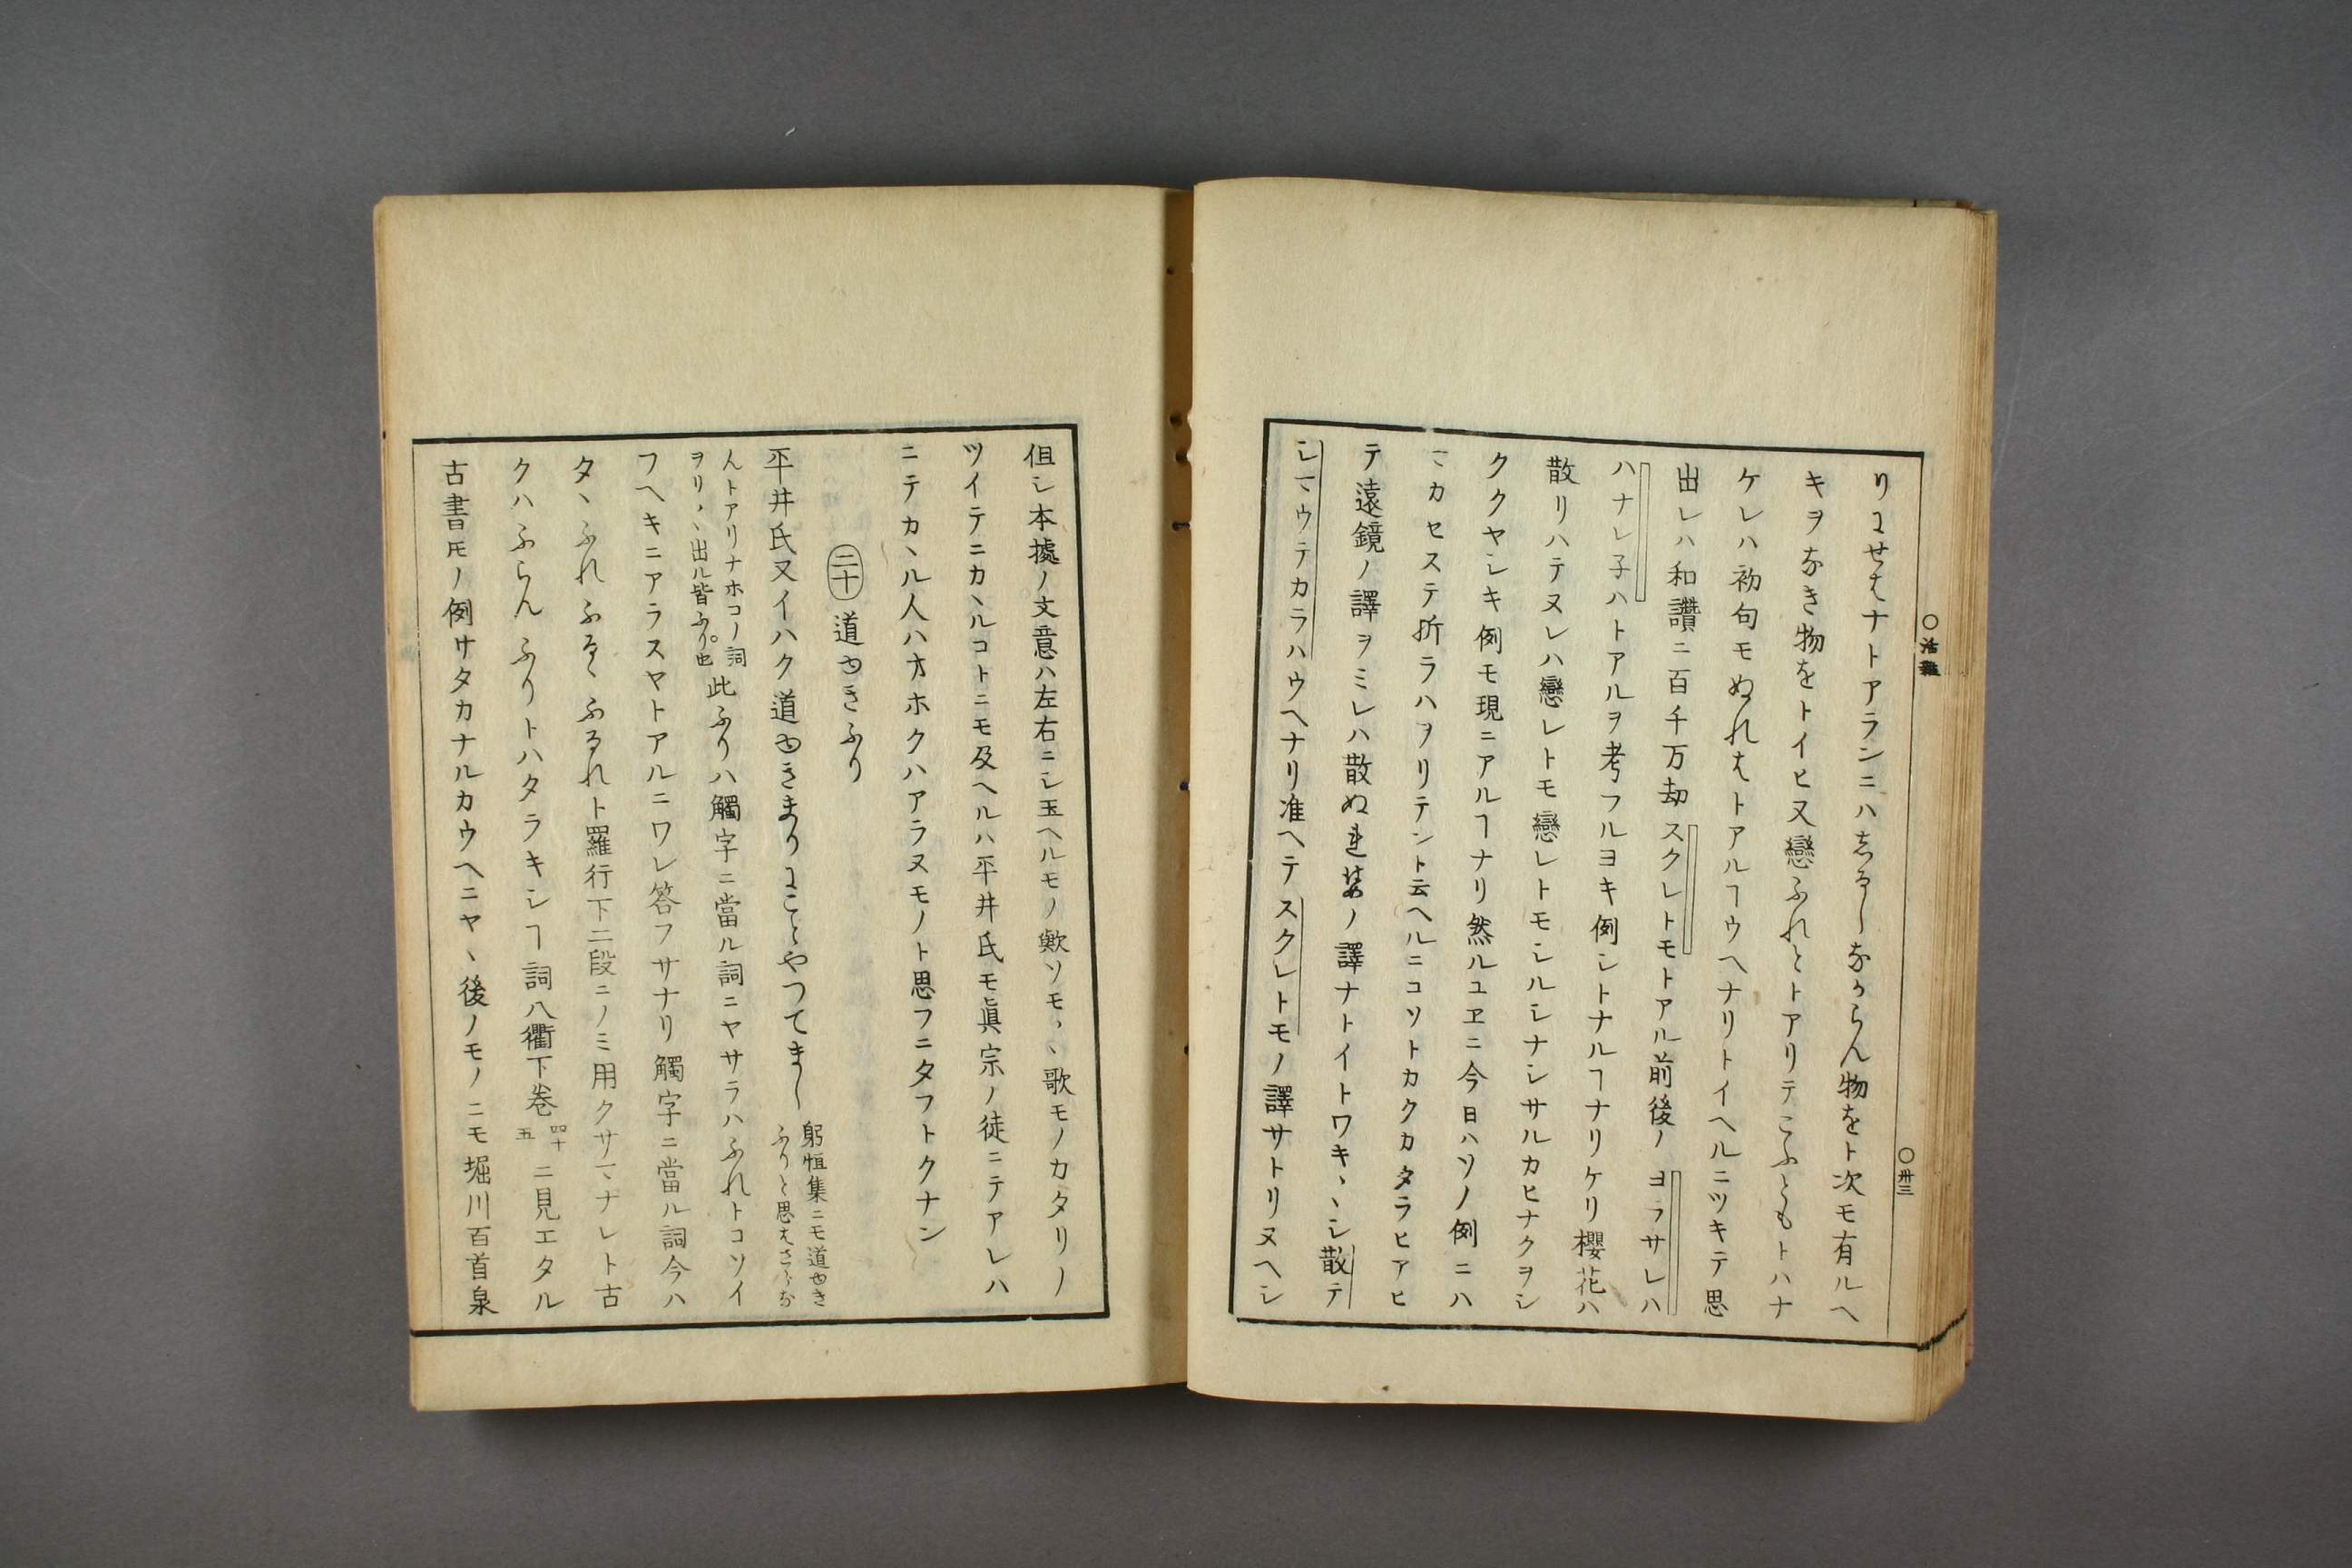 りにせはナトアランニハ志るしなからん物をト次モ有ルヘ
キヲなき物をトイヒ又戀ふれとトアリテこふともトハナ
ケレハ初句モぬれはトアルヿウヘナリトイヘルニツキテ思
出レハ和讚ニ百千万劫スクレトモトアル前後ノヨフサレハ
ハナレ子ハトアルヲ考フルヨキ例シトナルヿナリケリ櫻花ハ
散リハテヌレハ戀レトモ戀レトモシルシナシサルカヒナクヲシ
ククヤシキ例モ現ニアルヿナリ然ルユヱニ今日ハソノ例ニハ
マカセステ折ラハヲリテント云ヘルニコソトカクカタラヒアヒ
テ遠鏡ノ譯ヲミレハ散ぬれはノ譯ナトイトワキヽヽシ散テ
シマウテカラハウヘナリ准ヘテスクレトモノ譯サトリヌヘシ
〇活雜
〇卅三
但シ本據ノ文意ハ左右ニシ玉ヘルモノ歟ソモヽヽ歌モノカタリノ
ツイテニカヽルコトニモ及ヘルハ平井氏モ眞宗ノ徒ニテアレハ
ニテカヽル人ハオホクハアラヌモノト思フニタフトクナン
二十 道ゆきふり
平井氏又イハク道ゆきまりにことやつてまし
躬恒集ニモ道ゆき
ふりと思はさらな
んトアリナホコノ詞
ヲリヽヽ出ル皆ふり也
此ふりハ觸字ニ當ル詞ニヤサラハふれトコソイ
フヘキニアラスヤトアルニワレ答フサナリ觸字ニ當ル詞今ハ
タヽふれふるヽふるれト羅行下二段ニノミ用クサマナレト古
クハふらんふりトハタラキシヿ詞八衢下卷四十五ニ見エタル
古書𪜈ノ例サタカナルカウヘニヤヽ後ノモノニモ堀川百首泉